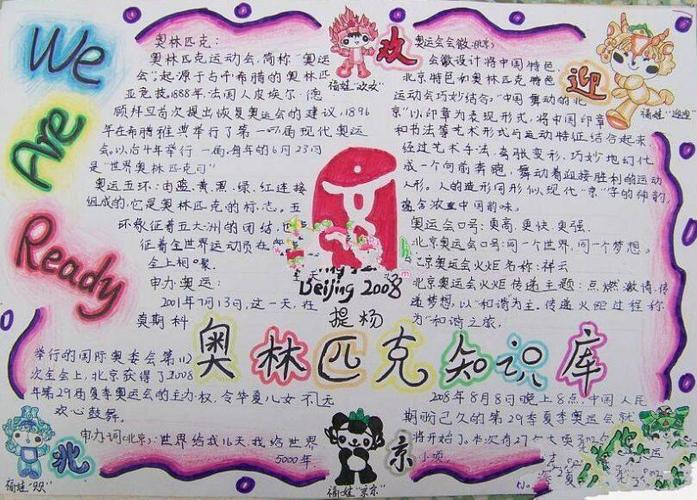 We
Are
Ready
奥林匹克:
奥林匹克运动会,简称"奥运
会",起源于古希腊的奥林匹
亚竞技,1888年,法国人皮埃尔·德
顾拜旦首次提出恢复奥运会的建议,1896
年在希腊雅典举行了第一届现代奥运
会,以后4年举行一届,每年的6月23日
是"世界奥林匹克日"
奥运五环:由蓝、黄、黑、绿、红连接
组成的,它是奥林匹克的标志。五
环象征着五大洲的团结,
征着全世界运动员在
会上相
申办奥运:
2001年7月13日,这一天,在
莫斯科
举行的国际奥委会第112
次全会上,北京获得了2008
年第29届夏季奥运会的主办权,令华夏儿女不远
欢心鼓舞。
申办词(北京):世界给我16天,我给世界
5000年
福娃"欢欢"
欢
迎
福娃"迎迎"
奥运会会徽:(北京)
会徽设计将中国特色、
北京特色和奥林匹克特色
运动会巧妙结合,"中国 舞动的北
京"以印章为表现形式,将中国印章
和书法等艺术形式与运动特征结合起来
经过艺术手法,夸张变形,巧妙地幻化
成一个向前奔跑,舞动着迎接胜利的运动
人形。人的造型同形似现代"京"字的神韵,
蕴含浓重中国韵味。
奥运会口号:更高、更快、更强。
北京奥运会口号:同一个世界,同一个梦想。
北京奥运会火炬名称:祥云
北京奥运会火炬传递主题:点燃激情,传
递梦想,以"和谐为主,传递火炬过程称
为"和谐之旅。
Beijing 2008
提杨
奥林匹克知识库
2008年8月8日晚上8点,中国人民
期盼已久的第29季夏季奥运会就
将开始了,本次有27个大项302个
小项,
北
福娃"贝贝"
福娃"京京"
京